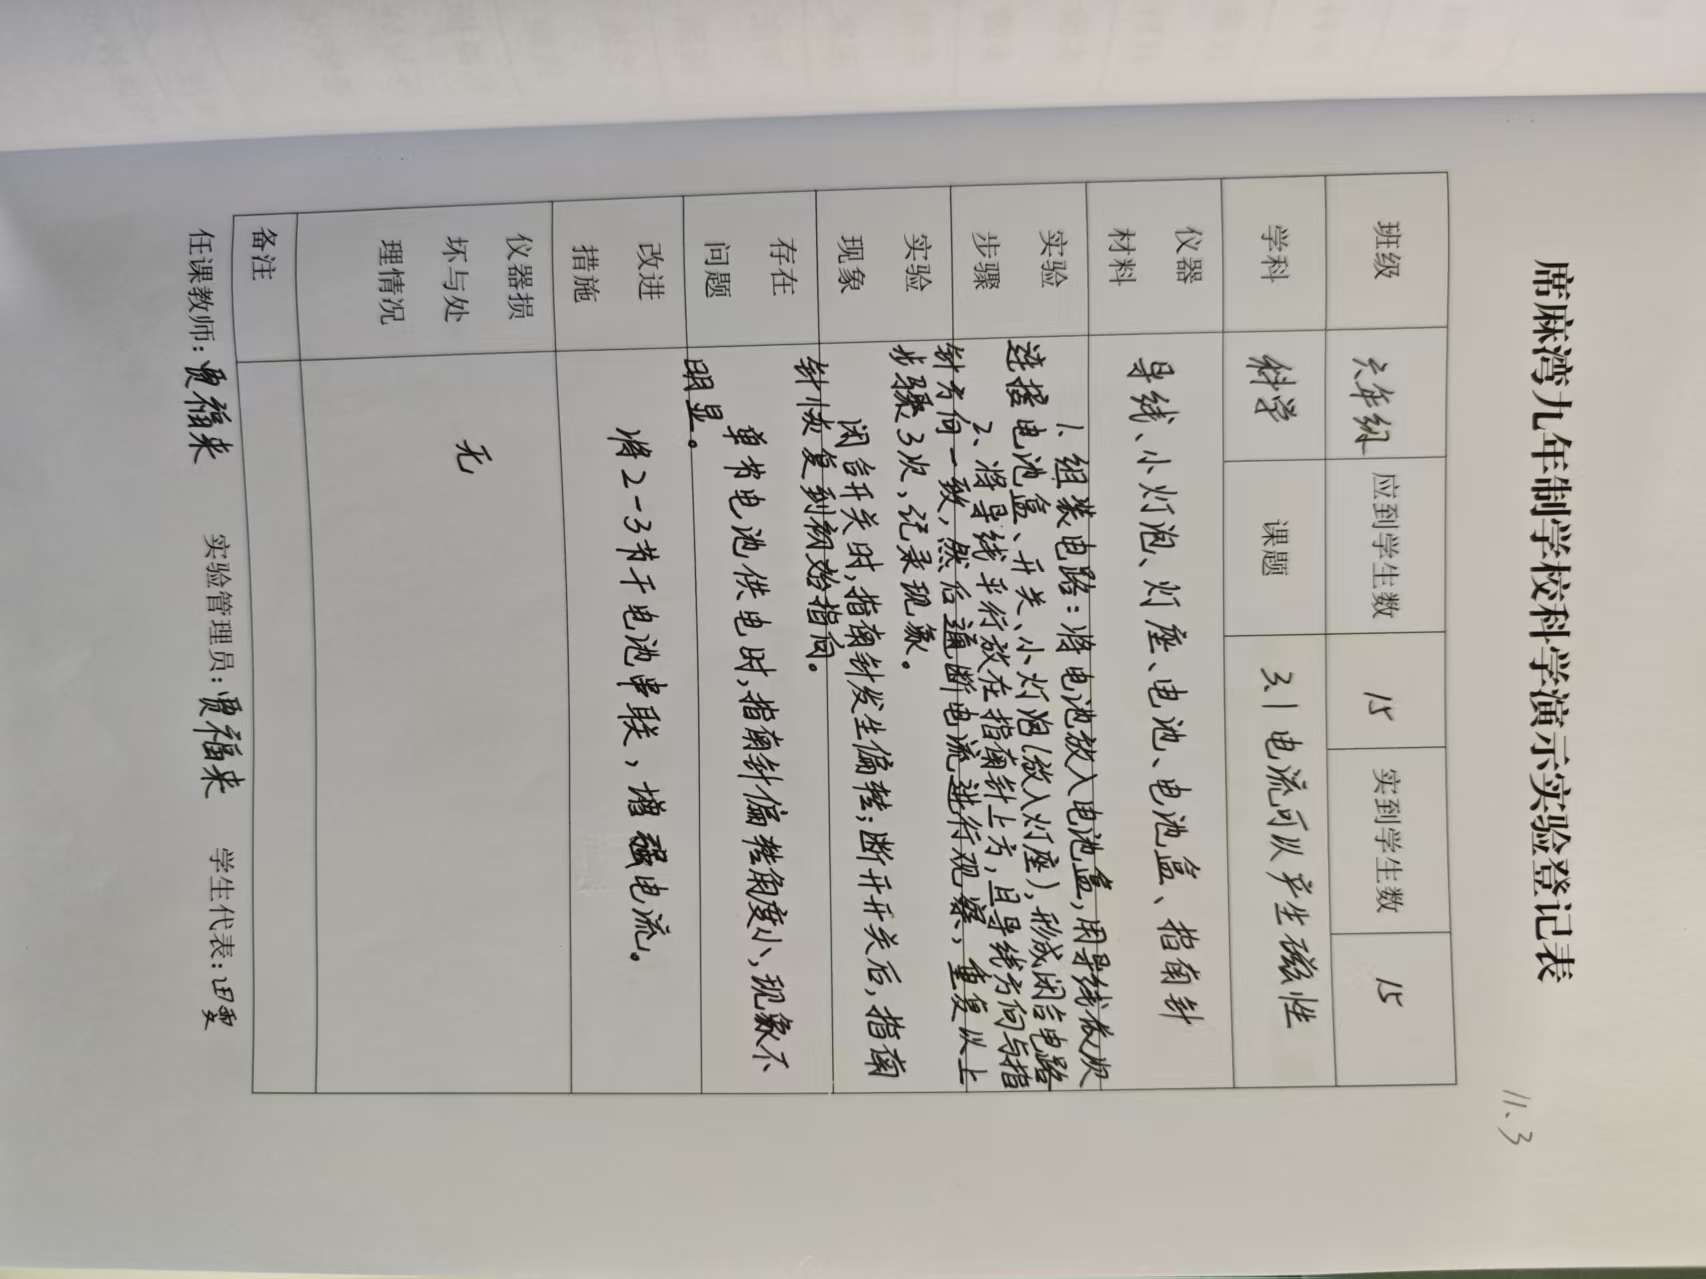 席麻湾九年制学校科学演示实验登记表
11.3
班级 六年级 应到学生数 15 实到学生数 15
学科 科学 课题 3.1电流可以产生磁性
仪器
材料
导线、小灯泡、灯座、电池、电池盒、指南针
实验
步骤
1、组装电路：将电池放入电池盒，用导线依次
连接电池盒、开关、小灯泡(放入灯座)，形成闭合电路
2、将导线平行放在指南针上方，且导线方向与指
针方向一致，然后通断电流进行观察，重复以上
步骤3次，记录现象。
实验
现象
闭合开关时，指南针发生偏转；断开开关后，指南
针恢复到初始指向。
存在
问题
单节电池供电时，指南针偏转角度小，现象不
明显。
改进
措施
将2-3节干电池串联，增强电流。
仪器损
坏与处
理情况
无
备注
任课教师：贾福来 实验管理员：贾福来 学生代表：田雯